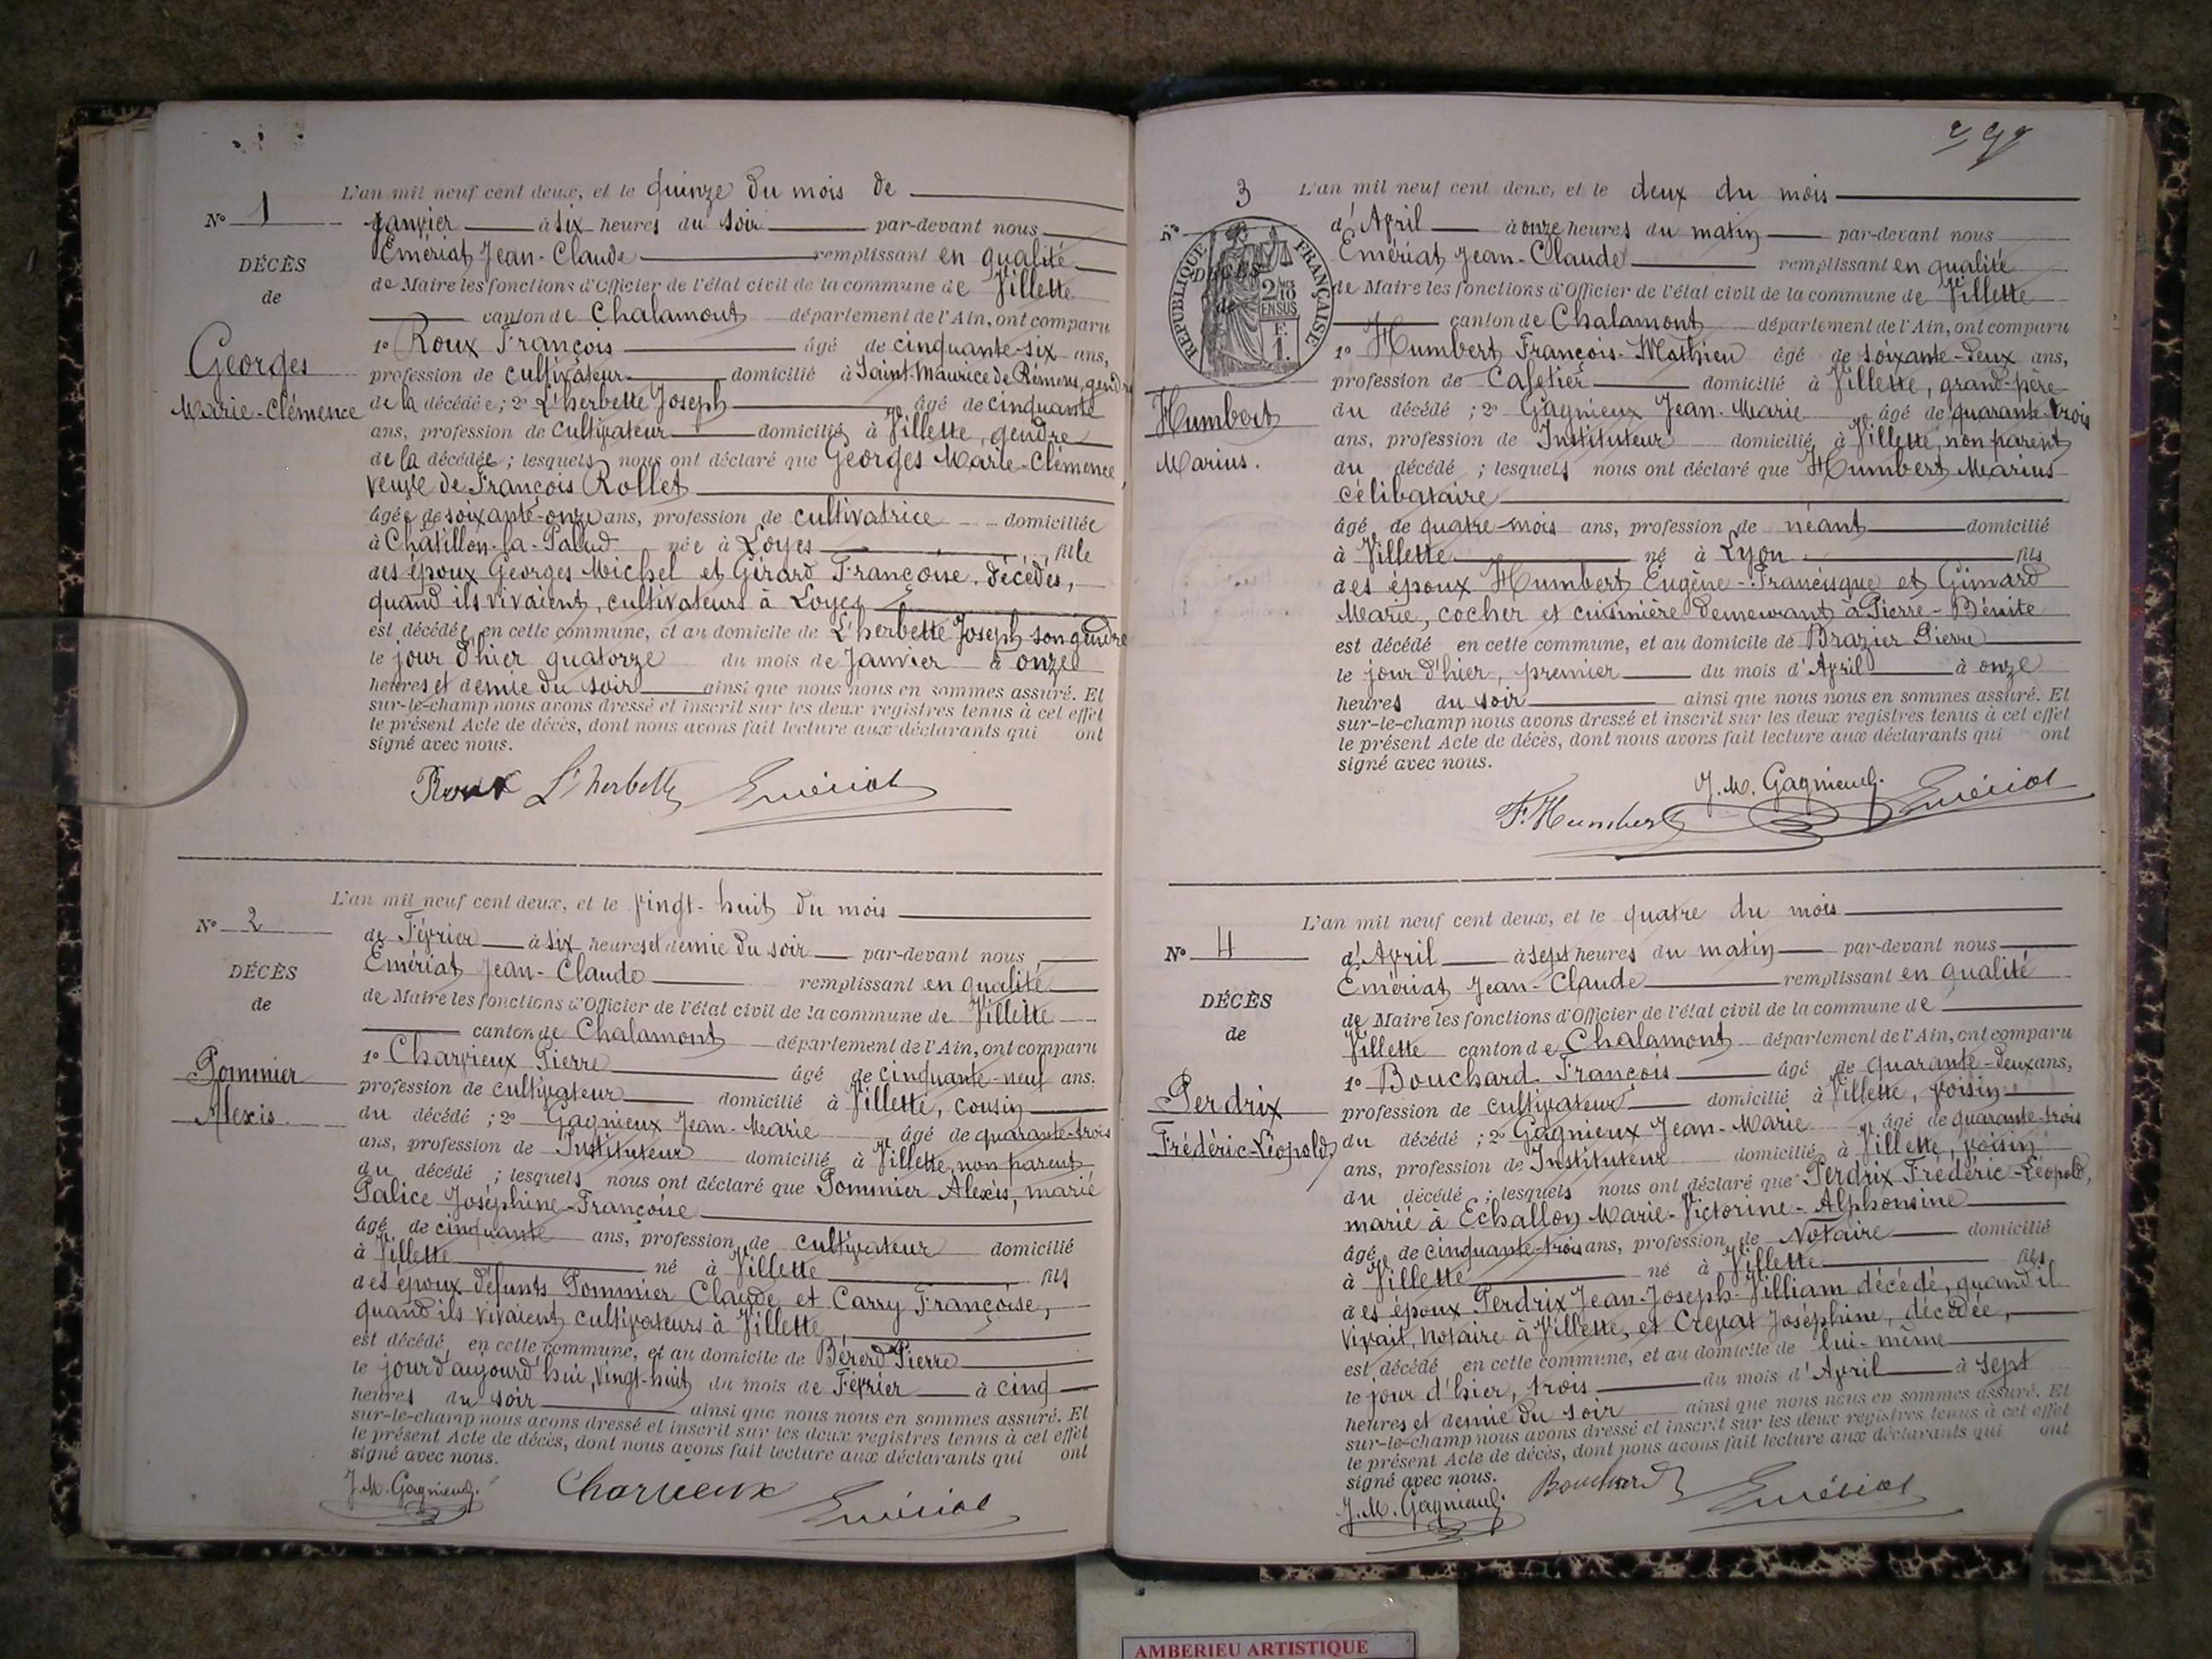 L'an mil neuf cent deux, et le quinze du mois de
N° 1
Janvier à six heures du soir par-devant nous
Emériat Jean-Claude remplissant en qualité
DÉCÈS
de Maire les fonctions d'Officier de l'état civil de la commune de Villette
de
canton de Chalamont département de l'Ain, ont comparu
Georges
1° Roux François âgé de cinquante-six ans,
profession de cultivateur domicilié à Saint-Maurice de Rémens, gendre
Marie-Clémence
de la décédée; 2° L'herbette Joseph âgé de cinquante
ans, profession de cultivateur domicilié à Villette, gendre
de la décédée; lesquels nous ont déclaré que Georges Marie-Clémence
veuve de François Rollet
âgée de soixante-onze ans, profession de cultivatrice domiciliée
à Châtillon-la-Palud née à Loyes fille
des époux Georges Michel et Girard Françoise, décédés,
quand ils vivaient, cultivateurs à Loyes
est décédée, en cette commune, et au domicile de L'herbette Joseph son gendre
le jour d'hier quatorze du mois de Janvier à onze
heures et demie du soir ainsi que nous nous en sommes assuré. Et
sur-le-champ nous avons dressé et inscrit sur les deux registres tenus à cet effet
le présent Acte de décès, dont nous avons fait lecture aux déclarants qui ont
signé avec nous.
Roux L'herbette Emériat
L'an mil neuf cent deux, et le vingt-huit du mois
N° 2
de Février à six heures et demie du soir par-devant nous
Emériat Jean-Claude remplissant en qualité
DÉCÈS
de Maire les fonctions d'Officier de l'état civil de la commune de Villette
de
canton de Chalamont département de l'Ain, ont comparu
1° Charvieux Pierre âgé de cinquante-neuf ans.
Pommier
profession de cultivateur domicilié à Villette, cousin
Alexis.
du décédé; 2° Gagnieux Jean-Marie âgé de quarante-trois
ans, profession de Instituteur domicilié à Villette, non parent
du décédé; lesquels nous ont déclaré que Pommier Alexis, marié
Palice Joséphine-Françoise
âgé de cinquante ans, profession de cultivateur domicilié
à Villette né à Villette fils
des époux défunts Pommier Claude et Carry Françoise,
quand ils vivaient cultivateurs à Villette
est décédé, en cette commune, et au domicile de Bérerd Pierre
le jour d'aujourd'hui, vingt-huit du mois de Février à cinq
heures du soir ainsi que nous nous en sommes assuré. Et
sur-le-champ nous avons dressé et inscrit sur les deux registres tenus à cet effet
le présent Acte de décès, dont nous avons fait lecture aux déclarants qui ont
signé avec nous.
J. M. Gagnieux. Charvieux Emériat
L'an mil neuf cent deux, et le deux du mois
N° 3
d'Avril à onze heures du matin par-devant nous
Emériat Jean-Claude remplissant en qualité
DÉCÈS
de
RÉPUBLIQUE FRANÇAISE
2/10 EN SUS
F. 1
de Maire les fonctions d'Officier de l'état civil de la commune de Villette
canton de Chalamont département de l'Ain, ont comparu
1° Humbert François-Mathieu âgé de soixante-deux ans,
profession de Cafetier domicilié à Villette, grand-père
Humbert
du décédé; 2° Gagnieux Jean-Marie âgé de quarante-trois
ans, profession de Instituteur domicilié à Villette, non parent
Marius.
du décédé; lesquels nous ont déclaré que Humbert Marius
célibataire
âgé de quatre-mois ans, profession de néant domicilié
à Villette né à Lyon fils
des époux Humbert Eugène-Francisque et Gimard
Marie, cocher et cuisinière demeurant à Pierre-Bénite
est décédé en cette commune, et au domicile de Brazier Pierre
le jour d'hier, premier du mois d'Avril à onze
heures du soir ainsi que nous nous en sommes assuré. Et
sur-le-champ nous avons dressé et inscrit sur les deux registres tenus à cet effet
le présent Acte de décès, dont nous avons fait lecture aux déclarants qui ont
signé avec nous.
F. Humbert J. M. Gagnieux. Emériat
L'an mil neuf cent deux, et le quatre du mois
N° 4
d'Avril à sept heures du matin par-devant nous
Emériat Jean-Claude remplissant en qualité
DÉCÈS
de Maire les fonctions d'Officier de l'état civil de la commune de
de
Villette canton de Chalamont département de l'Ain, ont comparu
1° Bouchard François âgé de quarante-deux ans,
Perdrix
profession de cultivateur domicilié à Villette, voisin
Frédéric-Léopold
du décédé; 2° Gagnieux Jean-Marie âgé de quarante-trois
ans, profession de Instituteur domicilié à Villette, voisin
du décédé; lesquels nous ont déclaré que Perdrix Frédéric-Léopold,
marié à Echallon Marie-Victorine-Alphonsine
âgé de cinquante-trois ans, profession de Notaire domicilié
à Villette né à Villette fils
des époux Perdrix Jean-Joseph-William décédé, quand il
vivait, notaire à Villette, et Crepat Joséphine, décédée,
est décédé en cette commune, et au domicile de lui-même
le jour d'hier, trois du mois d'Avril à sept
heures et demie du soir ainsi que nous nous en sommes assuré. Et
sur-le-champ nous avons dressé et inscrit sur les deux registres tenus à cet effet
le présent Acte de décès, dont nous avons fait lecture aux déclarants qui ont
signé avec nous.
J. M. Gagnieux. Bouchard Emériat
AMBERIEU ARTISTIQUE